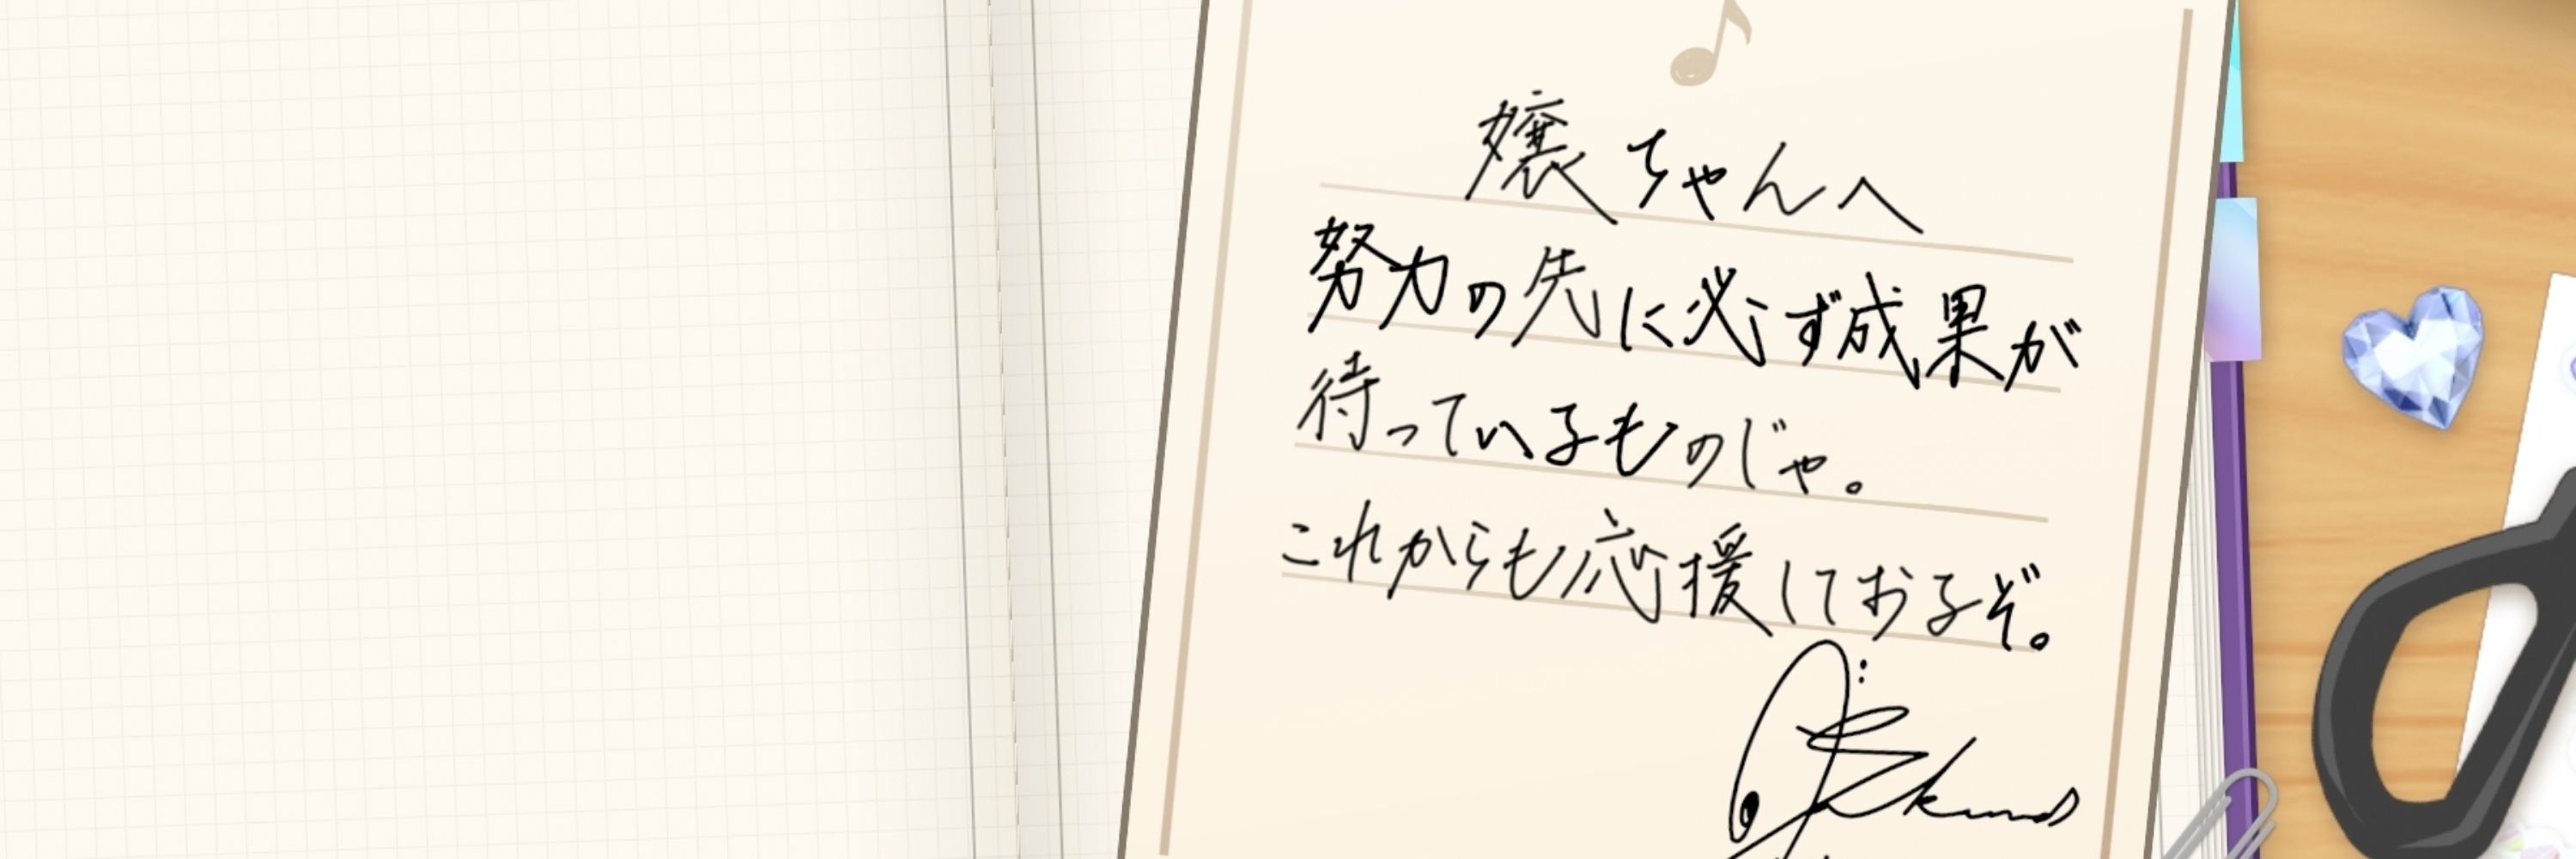 嬢ちゃんへ
努力の先に必ず成果が
待っているものじゃ。
これからも応援しておるぞ。